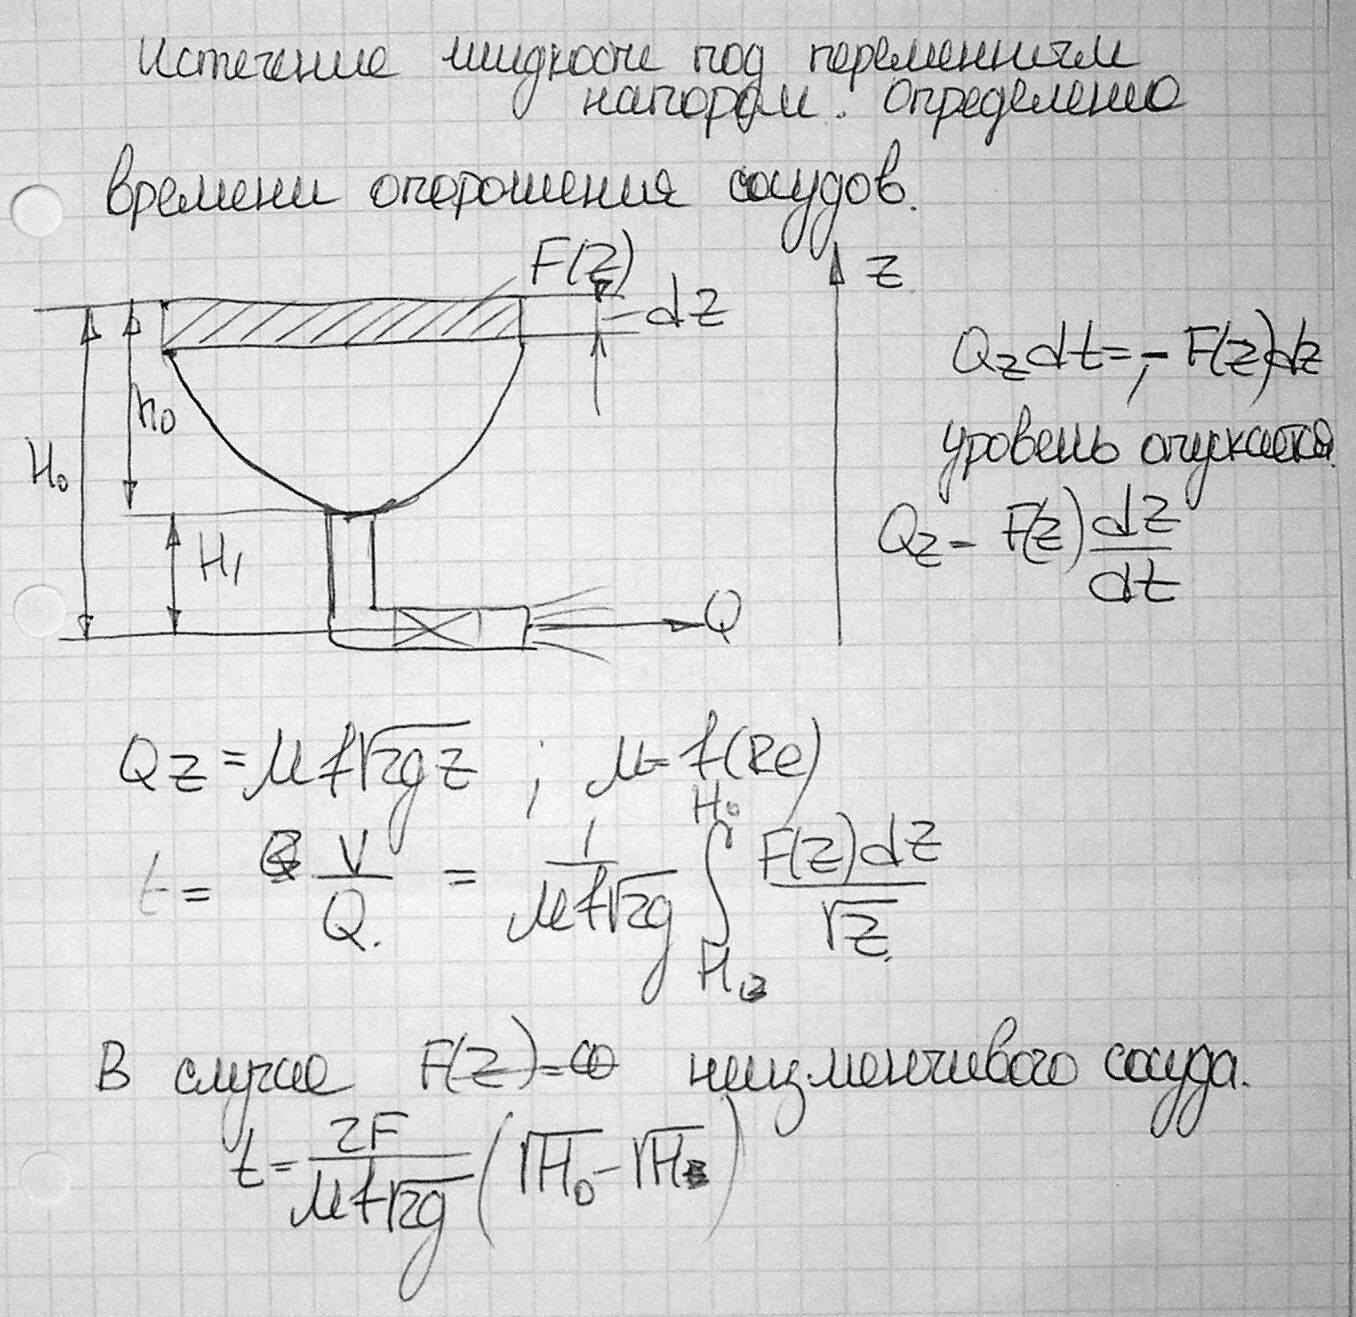 Истечение жидкости под переменным
напором. Определение
времени опорошения сосудов.
F(z)
z
dz
Q_z dt = - F(z)dz
h₀
H₀
уровень опускается
Q_z = F(z) dz/dt
H₁
Q
Q_z = μf√2gz ; μ = f(Re)
t = V/Q = 1/(μf√2g) ∫ F(z)dz/√z
H₀
В случае F(z)=∞ неизменчивого сосуда.
t = 2F/(μf√2g) (√H₀ - √H